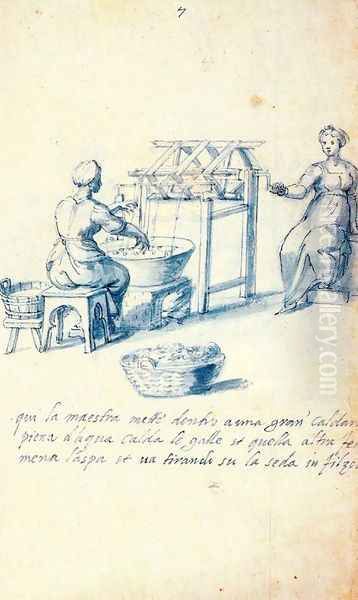 7
qui la maestra mette dentro a una gran' caldar
piena d'aqua calda le galle et quella altra te
mena l'aspa et va tirando su la seda in filze
allpaintingsgallery.com